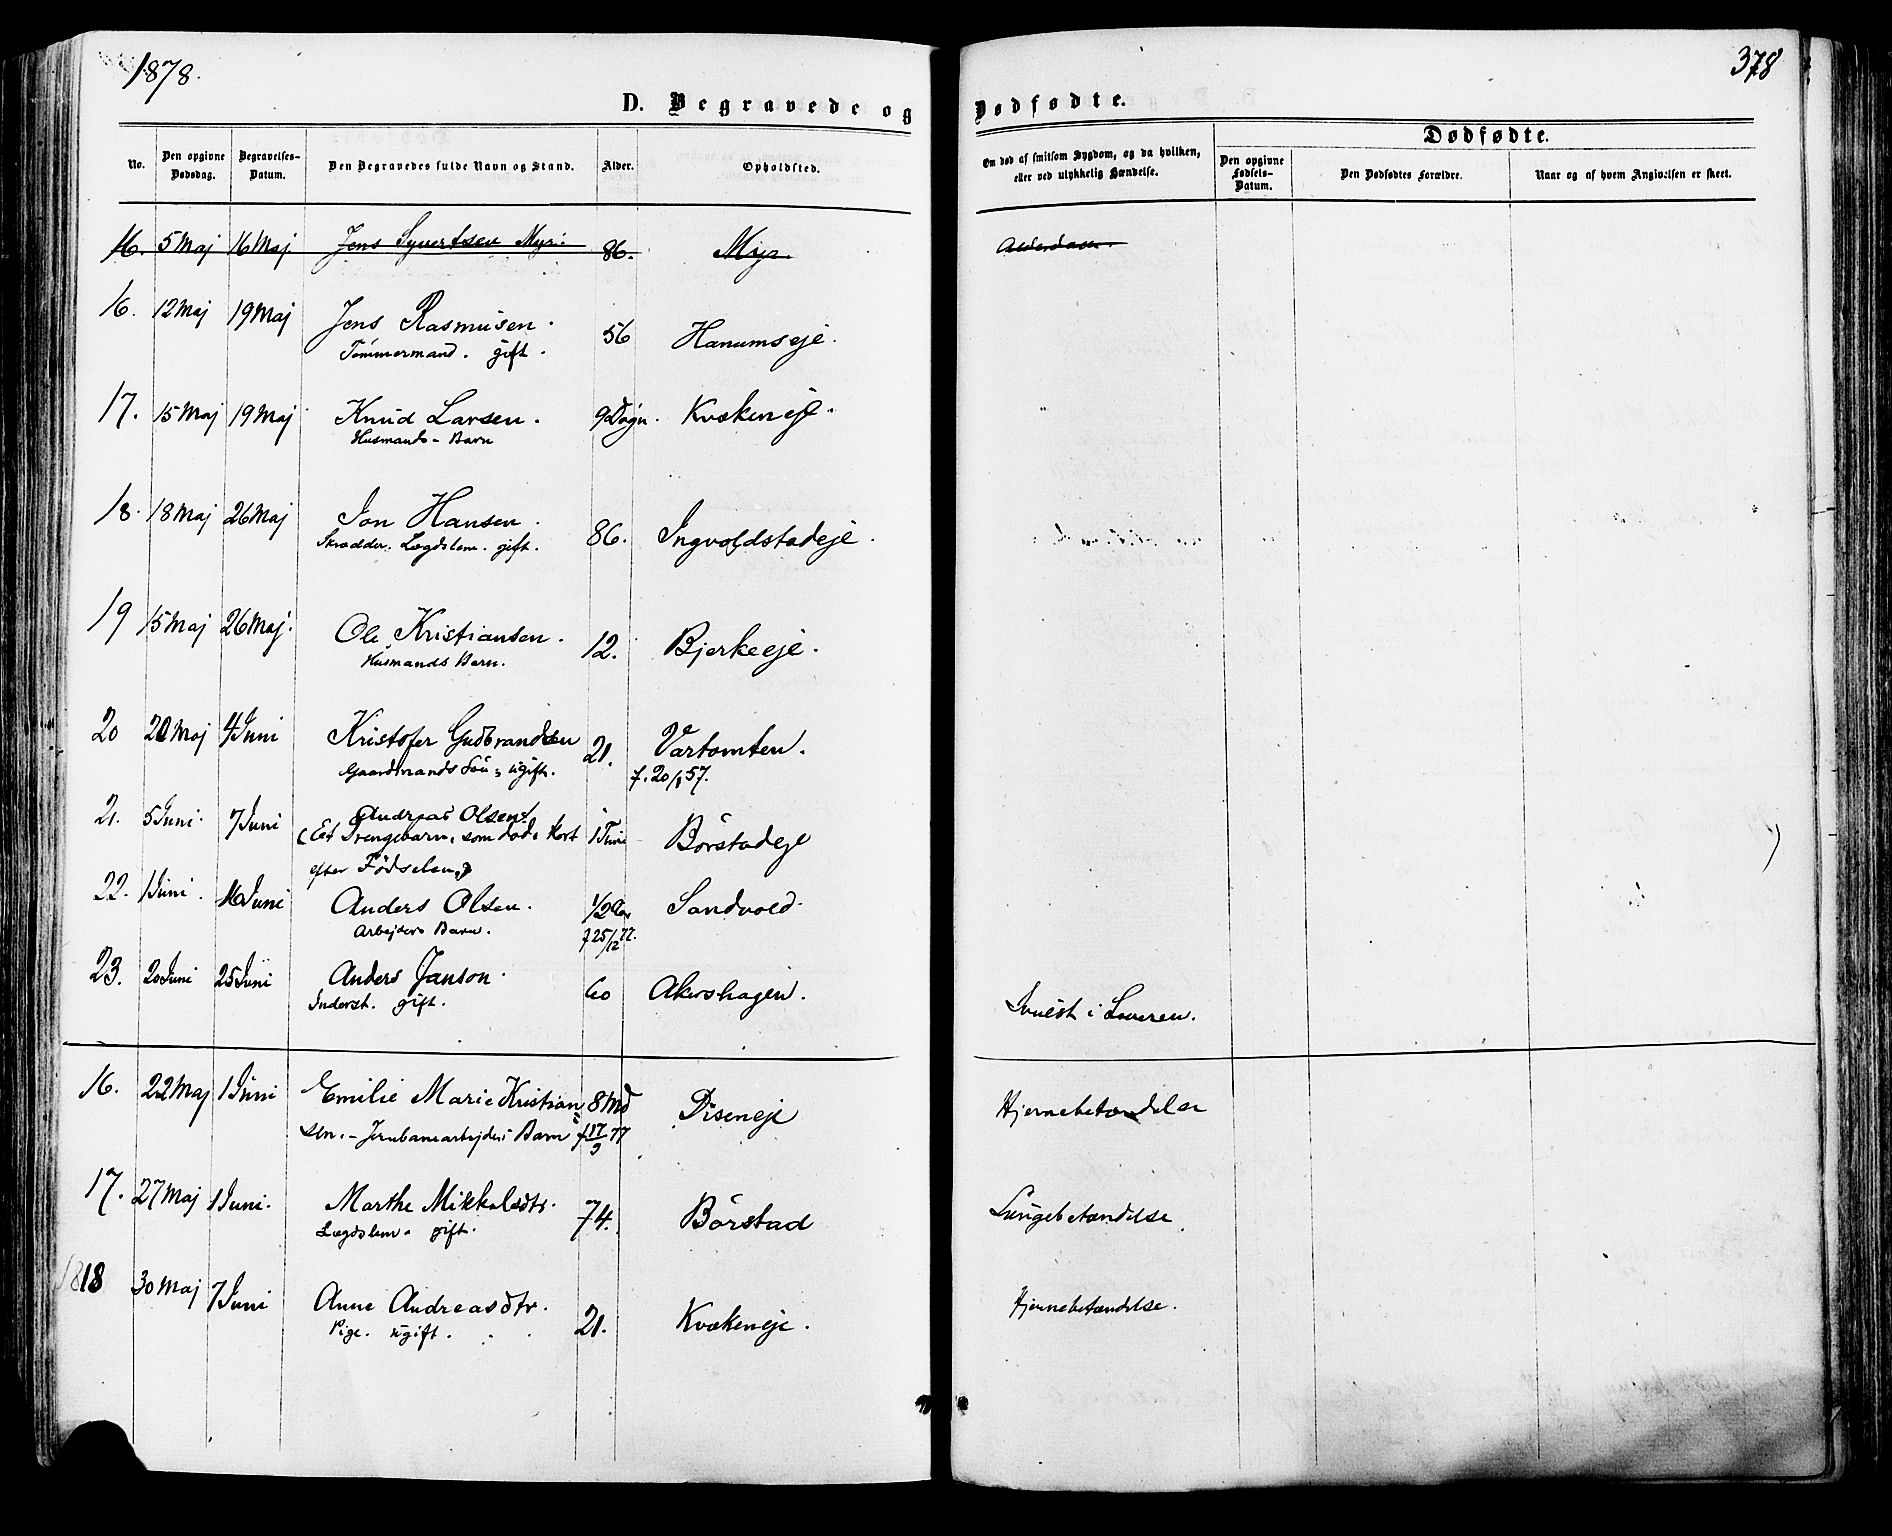 1878.
378
D. Begravede og Dødfødte.
Dødfødte.
No.
Den opgivne Dødsdag.
Begravelses-Datum.
Den Begravedes fulde Navn og Stand.
Alder.
Opholdsted.
Om død af smitsom Sygdom, og da hvilken, eller ved ulykkelig Hændelse.
Den opgivne Fødsels-Datum.
Den Dødfødtes Forældre.
Naar og af hvem Angivelsen er skeet.
16. 5 Maj 16 Maj Jens Syvertsen Myr. 86. Myr. Alderdom.
16. 12 Maj 19 Maj Jens Rasmusen. 56 Hanumseje.
Tömmermand. gift.
17. 15 Maj 19 Maj Knud Larsen. 9 Dögn. Kvækeneje.
Husmands-Barn
18. 18 Maj 26 Maj Jon Hansen. 86. Ingvoldstadeje.
Skrædder. Lægdslem. gift.
19 15 Maj 26 Maj. Ole Kristiansen. 12. Bjerkeeje.
Husmands Barn.
20 20 Maj 4 Juni Kristofer Gudbrandsen 21. Vartomten.
Gaardmands Sön, ugift. f. 20/8 57.
21. 5 Juni. 7 Juni Andreas Olsen
(Et Drengebarn, som döde kort 1 Time Börstadeje
efter Födselen.)
22. 1 Juni. 16 Juni Anders Olsen. 1/2 Aar Sandvold
Arbejders Barn. f 25/12 77.
23. 20 Juni 25 Juni Anders Janson. 60 Akershagen.
Inderst. gift. Svulst i Leveren.
16. 22 Maj 1 Juni Emilie Marie Kristian 8 Md Diseneje Hjernebetændelse
sen. - Jernbanearbejders Barn f 17/9 77
17. 27 Maj 1 Juni. Marthe Mikkelsdtr. 74. Börstad Lungebetændelse.
Lægdslem. gift.
18 30 Maj 7 Juni Anne Andreasdtr. 21. Kvækeneje. Hjernebetændelse.
Pige. ugift.